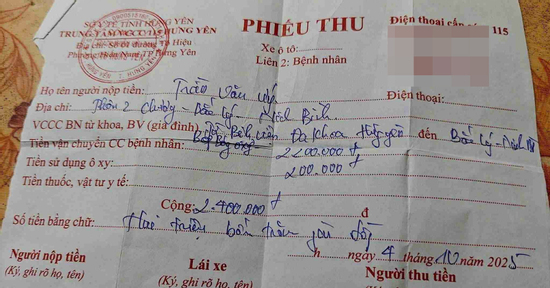 SỞ Y TẾ TỈNH HƯNG YÊN
TRUNG TÂM VCCC 115 HƯNG YÊN
Địa chỉ: Số 01 đường Tô Hiệu
Phường Hiến Nam TP Hưng Yên
PHIẾU THU
Xe ô tô:
Liên 2: Bệnh nhân
Điện thoại cấp cứu 115
Họ tên người nộp tiền: Trần Văn
Địa chỉ: Thôn 2 - Bắc Lý - Ninh Bình
Điện thoại:
VCCC BN từ khoa, BV (gia đình) Bệnh viện Đa khoa đến Bắc Lý - Ninh
Tiền vận chuyển CC bệnh nhân: 2200.000đ
Tiền sử dụng ô xy: 200.000đ
Tiền thuốc, vật tư y tế:
Cộng: 2.400.000đ đ
Số tiền bằng chữ: Hai triệu bốn trăm đồng
h ngày 4 tháng 10 năm 2025
Người nộp tiền
(Ký, ghi rõ họ, tên)
Lái xe
(Ký, ghi rõ họ, tên)
Người thu tiền
(Ký, ghi rõ họ, tên)